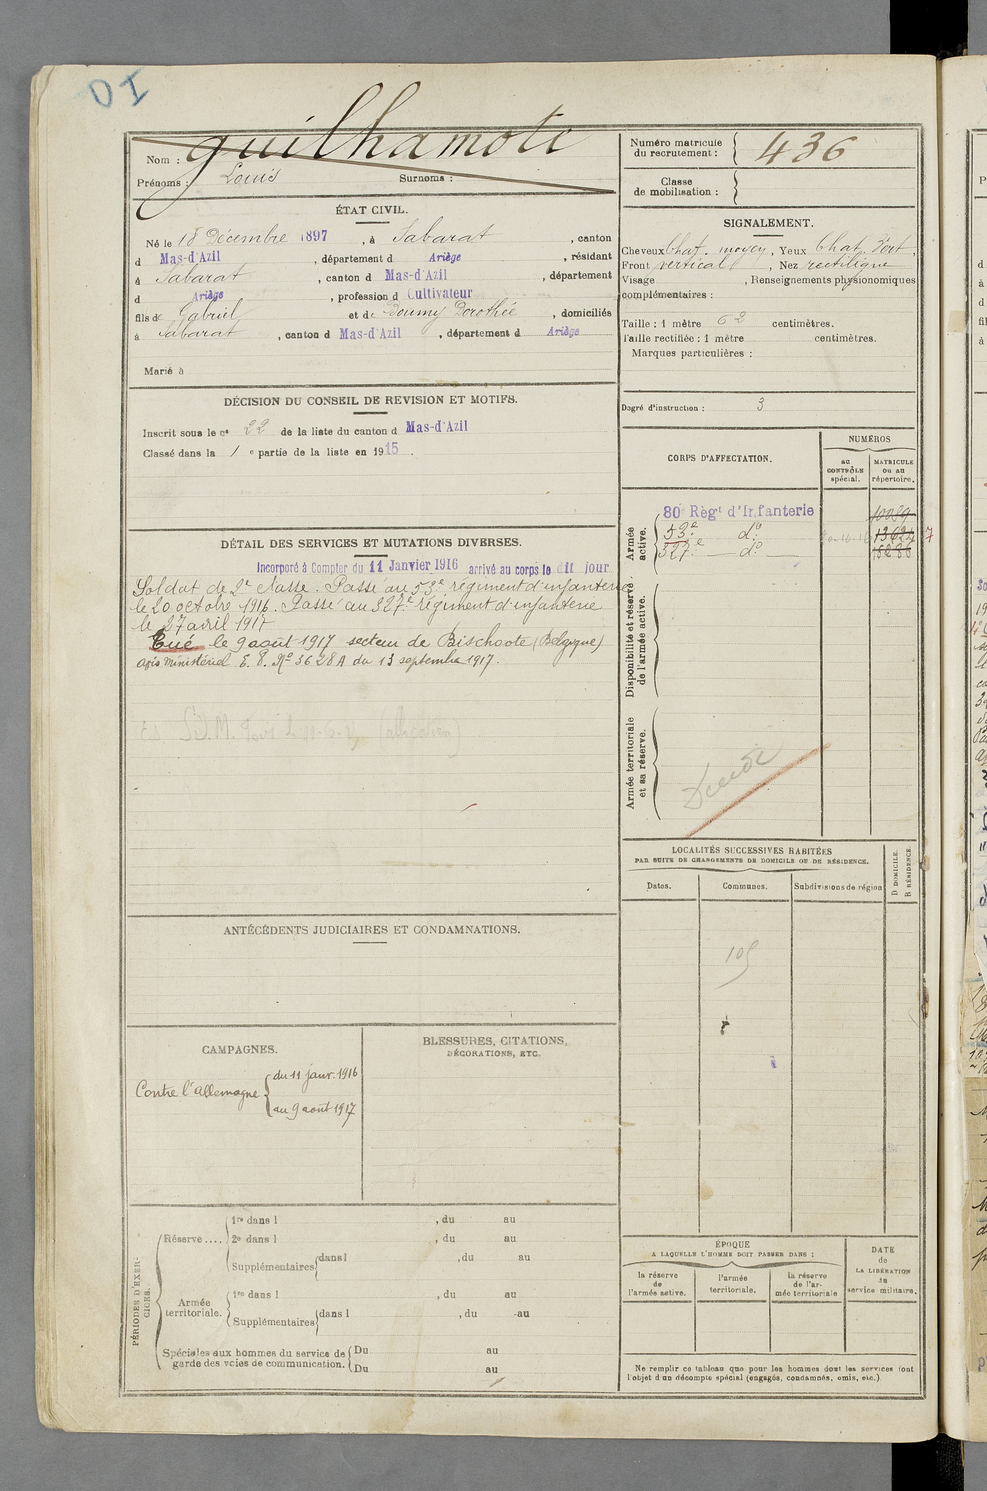 OI
Nom : Guilhamote
Prénoms : Louis Surnoms :
Numéro matricule du recrutement : 436
Classe de mobilisation :
ÉTAT CIVIL.
Né le 18 Décembre 1897, à Sabarat, canton
d Mas-d'Azil, département d Ariège, résidant
à Sabarat, canton d Mas-d'Azil, département
d Ariège, profession d Cultivateur
fils de Gabriel et de Doumy Dorothée, domiciliés
à Sabarat, canton d Mas-d'Azil, département d Ariège
Marié à
SIGNALEMENT.
Cheveux Chat. moyen, Yeux Chat. Vert,
Front vertical, Nez rectiligne
Visage , Renseignements physionomiques
complémentaires :
Taille : 1 mètre 62 centimètres.
Taille rectifiée : 1 mètre centimètres.
Marques particulières :
Degré d'instruction : 3
DÉCISION DU CONSEIL DE REVISION ET MOTIFS.
Inscrit sous le n° 22 de la liste du canton d Mas-d'Azil
Classé dans la 1 e partie de la liste en 1915.
DÉTAIL DES SERVICES ET MUTATIONS DIVERSES.
Incorporé à Compter du 11 Janvier 1916 arrivé au corps le dit jour
Soldat de 2e classe. Passé au 53e régiment d'infanterie
le 20 octobre 1916. Passé au 327e régiment d'infanterie
le 27 avril 1917
Tué le 9 août 1917 secteur de Bischoote (Belgique)
avis ministériel E. P. N° 3628A du 13 septembre 1917.
CORPS D'AFFECTATION.
NUMÉROS
au CONTRÔLE spécial.
MATRICULE ou au répertoire.
Armée active.
80e Régt d'Infanterie
53e do
327e do
Disponibilité et réserve de l'armée active.
Armée territoriale et sa réserve.
LOCALITÉS SUCCESSIVES HABITÉES
PAR SUITE DE CHANGEMENTS DE DOMICILE OU DE RÉSIDENCE.
Dates. Communes. Subdivisions de région
D DOMICILE.
R RÉSIDENCE.
105
ANTÉCÉDENTS JUDICIAIRES ET CONDAMNATIONS.
CAMPAGNES.
Contre l'Allemagne
du 11 janv. 1916
au 9 août 1917
BLESSURES, CITATIONS,
DÉCORATIONS, ETC.
PÉRIODES D'EXERCICES.
Réserve ....
1re dans l , du au
2e dans l , du au
Supplémentaires dans l , du au
Armée territoriale.
1re dans l , du au
Supplémentaires dans l , du au
Spéciales aux hommes du service de
garde des voies de communication.
Du au
Du au
ÉPOQUE
A LAQUELLE L'HOMME DOIT PASSER DANS :
la réserve de l'armée active.
l'armée territoriale.
la réserve de l'armée territoriale
DATE de LA LIBÉRATION du service militaire.
Ne remplir ce tableau que pour les hommes dont les services font
l'objet d'un décompte spécial (engagés, condamnés, omis, etc.)